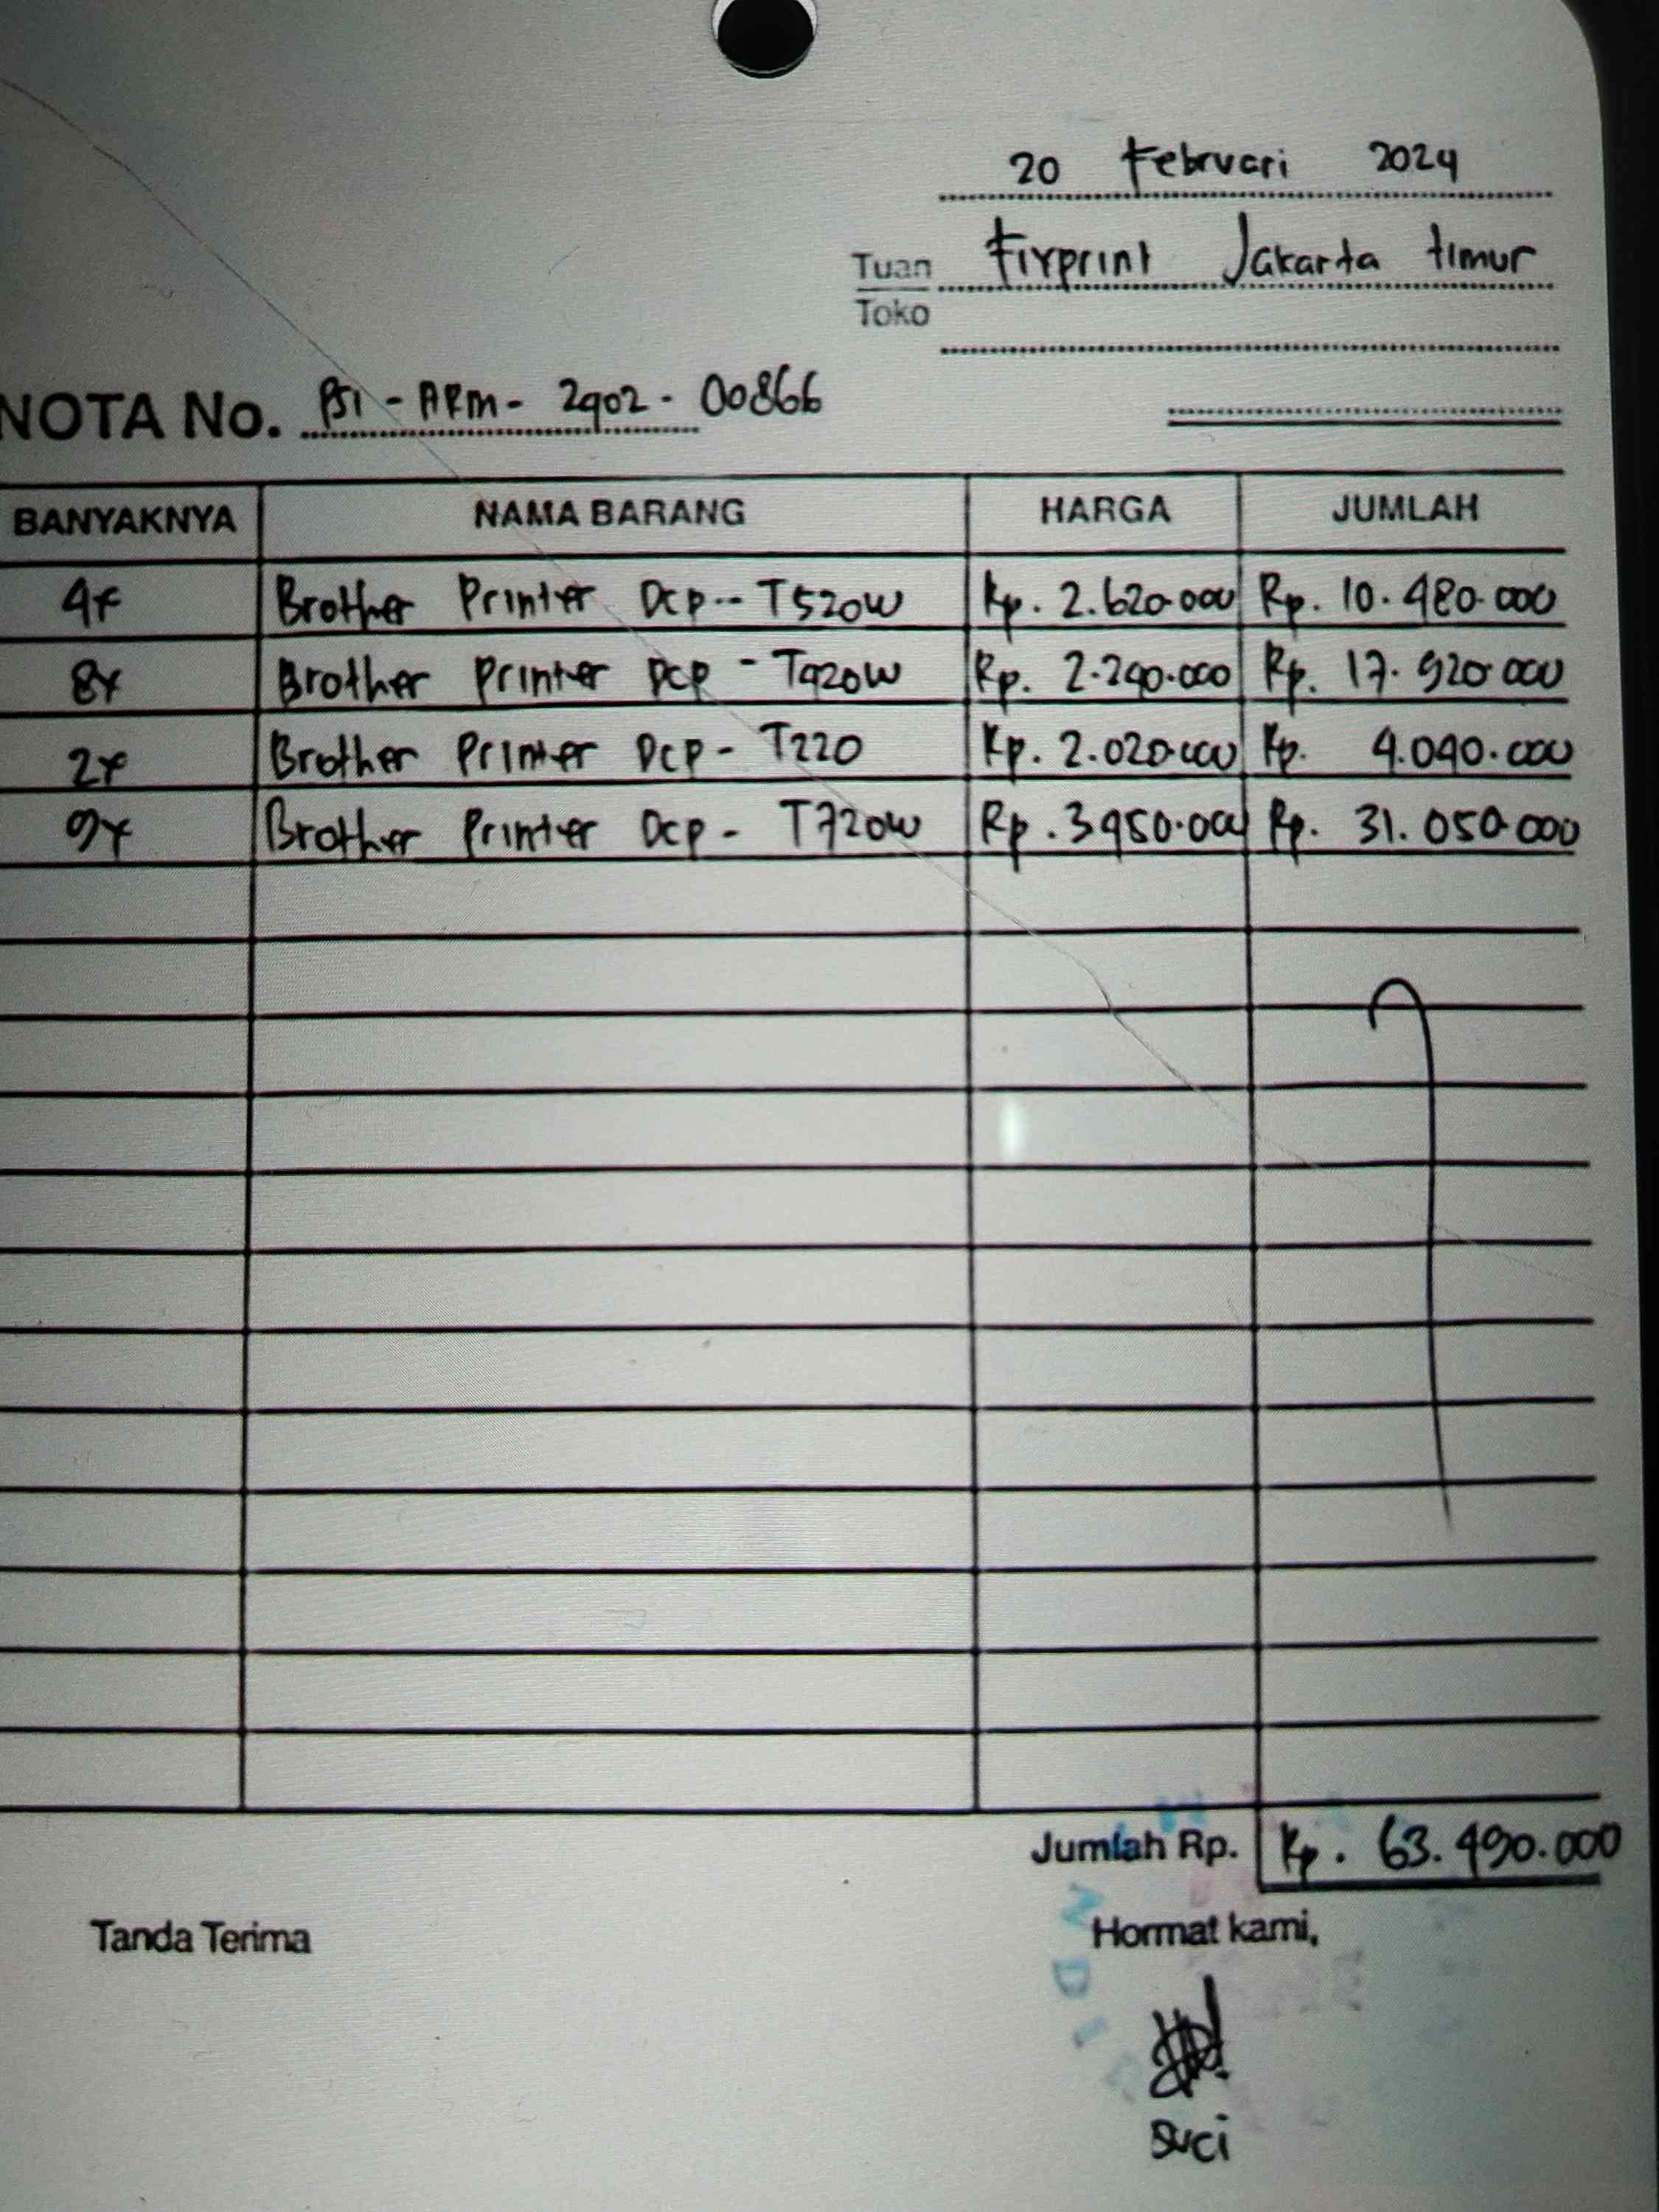 20 Februari 2024
Tuan Fixprint Jakarta timur
Toko
NOTA No. PSI - ARM - 2402 - 00866
BANYAKNYA NAMA BARANG HARGA JUMLAH
4x Brother Printer Dcp-- T520W Rp. 2.620.000 Rp. 10.480.000
8x Brother Printer Dcp - T420W Rp. 2.240.000 Rp. 17.920.000
2x Brother Printer Dcp - T220 Rp. 2.020.000 Rp. 4.040.000
9x Brother Printer Dcp - T720W Rp. 3.450.000 Rp. 31.050.000
Jumlah Rp. Rp. 63.490.000
Tanda Terima Hormat kami,
Suci